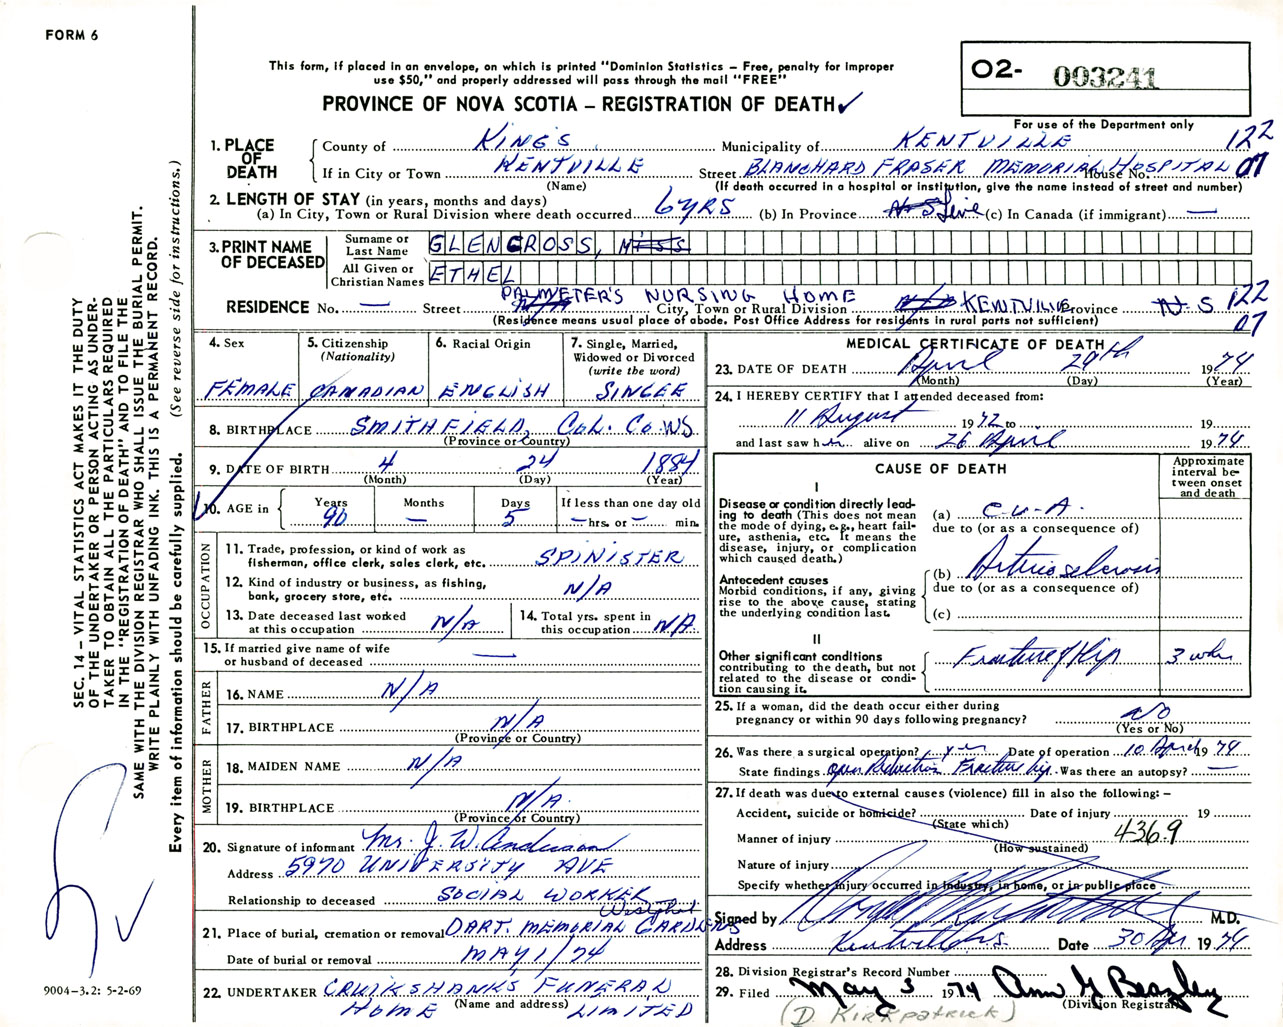 FORM 6
This form, if placed in an envelope, on which is printed "Dominion Statistics – Free, penalty for improper
use $50," and properly addressed will pass through the mail "FREE"
PROVINCE OF NOVA SCOTIA – REGISTRATION OF DEATH ✓
O2- 003241
For use of the Department only
1. PLACE OF DEATH
County of KING'S Municipality of KENTVILLE 122
If in City or Town KENTVILLE Street BLANCHARD FRASER MEMORIAL HOSPITAL House No. 07
(Name) (If death occurred in a hospital or institution, give the name instead of street and number)
2. LENGTH OF STAY (in years, months and days)
(a) In City, Town or Rural Division where death occurred 6 YRS (b) In Province N S Live (c) In Canada (if immigrant) —
3. PRINT NAME OF DECEASED
Surname or Last Name GLENCROSS, MISS
All Given or Christian Names ETHEL
PALMETER'S NURSING HOME
RESIDENCE No. — Street N/A City, Town or Rural Division N/A KENTVILLE Province N.S 122
(Residence means usual place of abode. Post Office Address for residents in rural parts not sufficient) 07
4. Sex FEMALE
5. Citizenship (Nationality) CANADIAN
6. Racial Origin ENGLISH
7. Single, Married, Widowed or Divorced (write the word) SINGLE
8. BIRTHPLACE SMITHFIELD, Col. Co. NS
(Province or Country)
9. DATE OF BIRTH 4 24 1884
(Month) (Day) (Year)
10. AGE in Years 90 Months — Days 5 If less than one day old — hrs. or — min.
OCCUPATION
11. Trade, profession, or kind of work as fisherman, office clerk, sales clerk, etc. SPINISTER
12. Kind of industry or business, as fishing, bank, grocery store, etc. N/A
13. Date deceased last worked at this occupation N/A
14. Total yrs. spent in this occupation N/A
15. If married give name of wife or husband of deceased —
FATHER
16. NAME N/A
17. BIRTHPLACE N/A
(Province or Country)
MOTHER
18. MAIDEN NAME N/A
19. BIRTHPLACE N/A.
(Province or Country)
20. Signature of informant Mr. J. W. Anderson
Address 5970 UNIVERSITY AVE
Relationship to deceased SOCIAL WORKER
21. Place of burial, cremation or removal DART. MEMORIAL GARDENS
Date of burial or removal MAY 1/74
22. UNDERTAKER CRUIKSHANK'S FUNERAL
(Name and address)
HOME LIMITED
MEDICAL CERTIFICATE OF DEATH
23. DATE OF DEATH April 29th 1974
(Month) (Day) (Year)
24. I HEREBY CERTIFY that I attended deceased from:
11 August 1972 to 19
and last saw h alive on 26 April 1974
CAUSE OF DEATH
Approximate interval between onset and death
I
Disease or condition directly leading to death (This does not mean the mode of dying, e.g., heart failure, asthenia, etc. It means the disease, injury, or complication which caused death.)
(a) C-V-A.
due to (or as a consequence of)
Antecedent causes
Morbid conditions, if any, giving rise to the above cause, stating the underlying condition last.
(b) Arteriosclerosis
due to (or as a consequence of)
(c)
II
Other significant conditions contributing to the death, but not related to the disease or condition causing it.
Fracture of Hip 3 wks
25. If a woman, did the death occur either during pregnancy or within 90 days following pregnancy? NO
(Yes or No)
26. Was there a surgical operation? yes Date of operation 10 April 1974
State findings open Reduction Fracture hip. Was there an autopsy? —
27. If death was due to external causes (violence) fill in also the following: –
Accident, suicide or homicide? Date of injury 19
(State which)
Manner of injury 436.9
(How sustained)
Nature of injury
Specify whether injury occurred in industry, in home, or in public place
Signed by M.D.
Address Kentville N.S. Date 30 Apr 1974
28. Division Registrar's Record Number
29. Filed May 3 1974 Ann G Beazley
(Division Registrar)
(D. KIRKPATRICK)
SEC. 14 – VITAL STATISTICS ACT MAKES IT THE DUTY
OF THE UNDERTAKER OR PERSON ACTING AS UNDER-
TAKER TO OBTAIN ALL THE PARTICULARS REQUIRED
IN THE "REGISTRATION OF DEATH" AND TO FILE THE
SAME WITH THE DIVISION REGISTRAR WHO SHALL ISSUE THE BURIAL PERMIT.
WRITE PLAINLY WITH UNFADING INK. THIS IS A PERMANENT RECORD.
Every item of information should be carefully supplied. (See reverse side for instructions.)
9004-3.2: 5-2-69